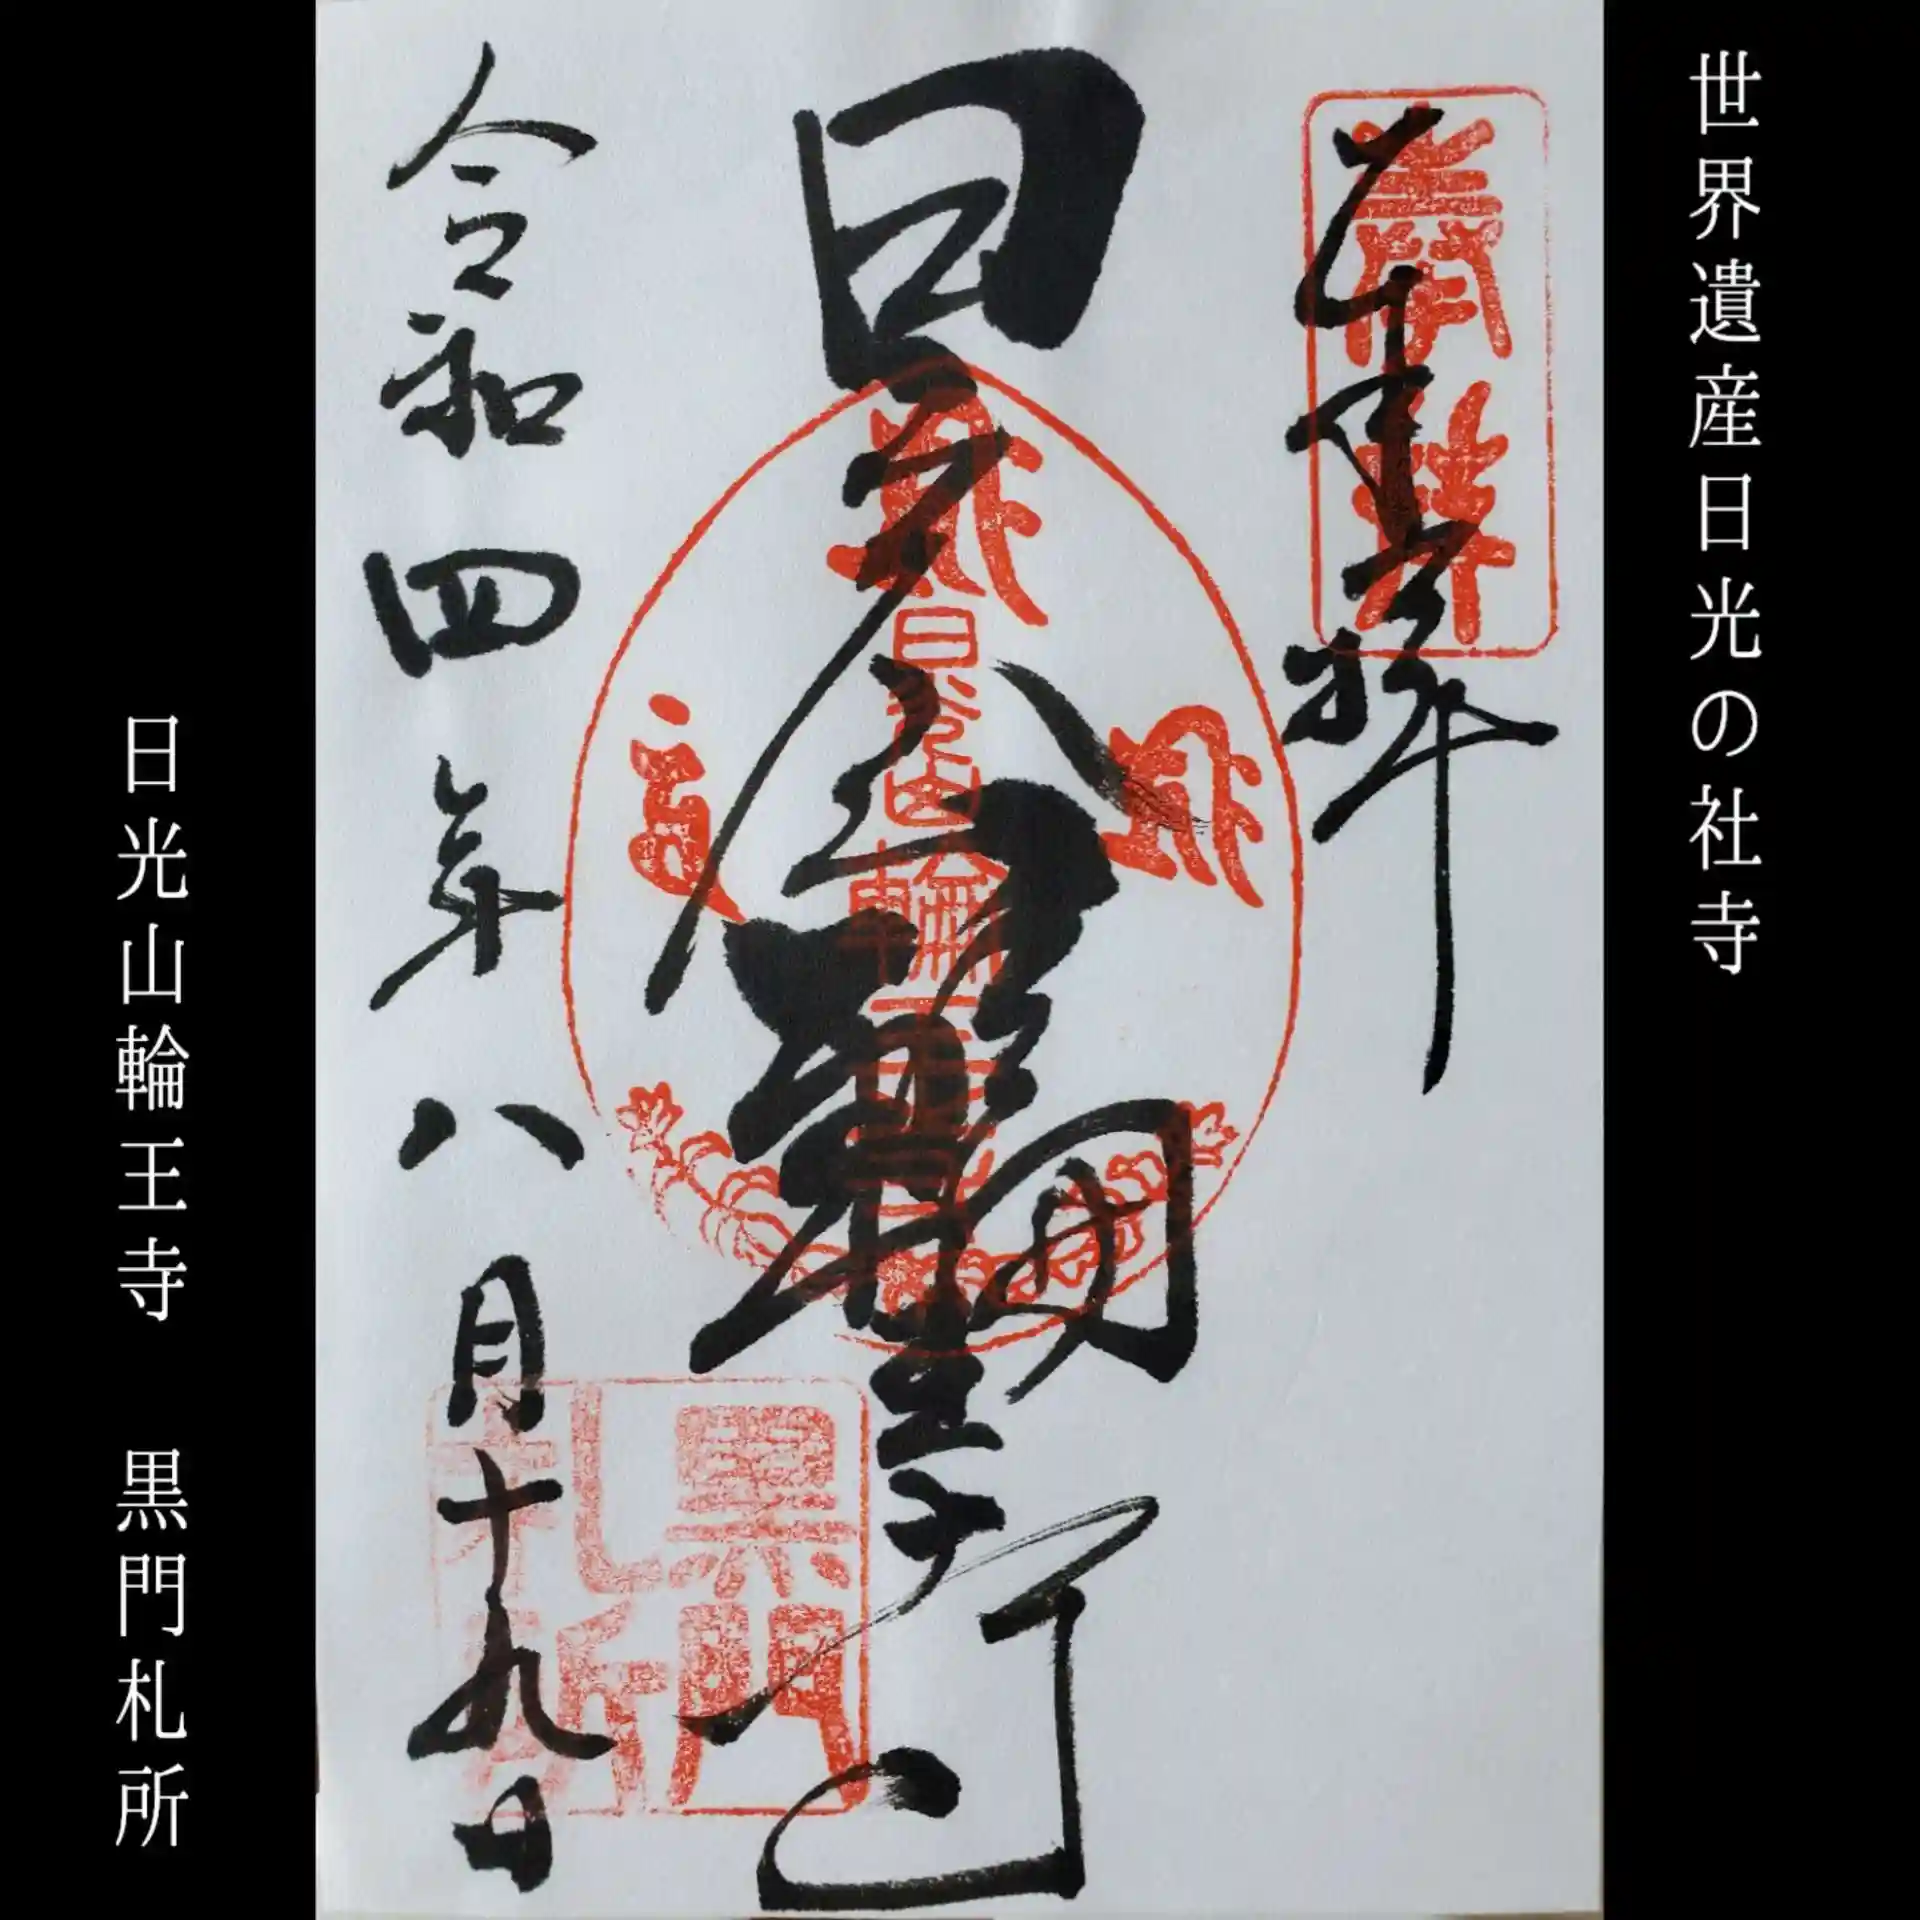 世界遺産日光の社寺
奉拝
奉拝
日光山輪王寺
令和四年八月十九日
黒門
札所
日光山輪王寺 黒門札所